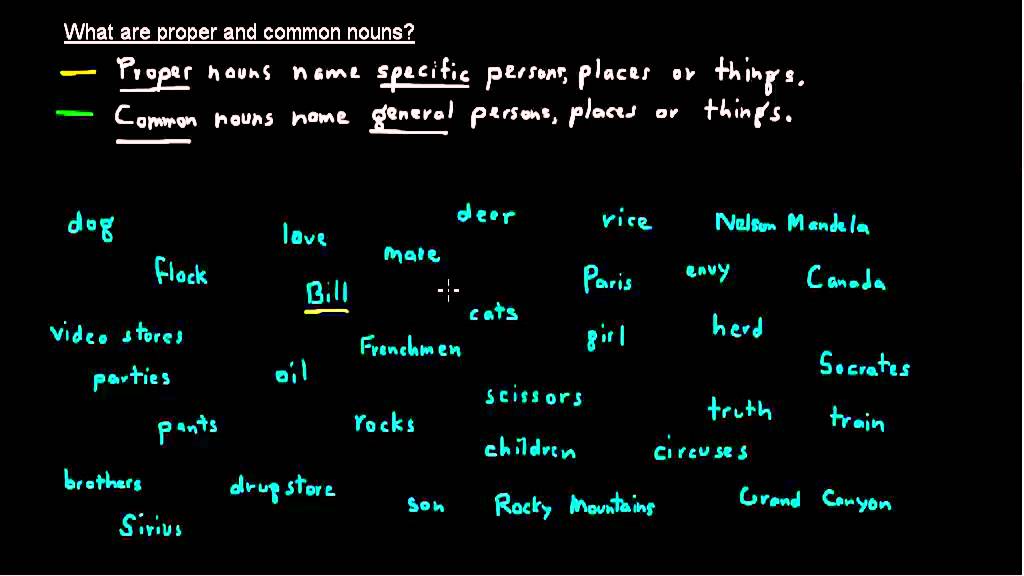 What are proper and common nouns?
Proper nouns name specific persons, places or things.
Common nouns name general persons, places or things.
dog
love
deer
rice
Nelson Mandela
flock
mare
Paris
envy
Canada
Bill
cats
video stores
Frenchmen
girl
herd
parties
oil
scissors
Socrates
pants
rocks
truth
train
children
circuses
brothers
drugstore
son
Rocky Mountains
Grand Canyon
Sirius